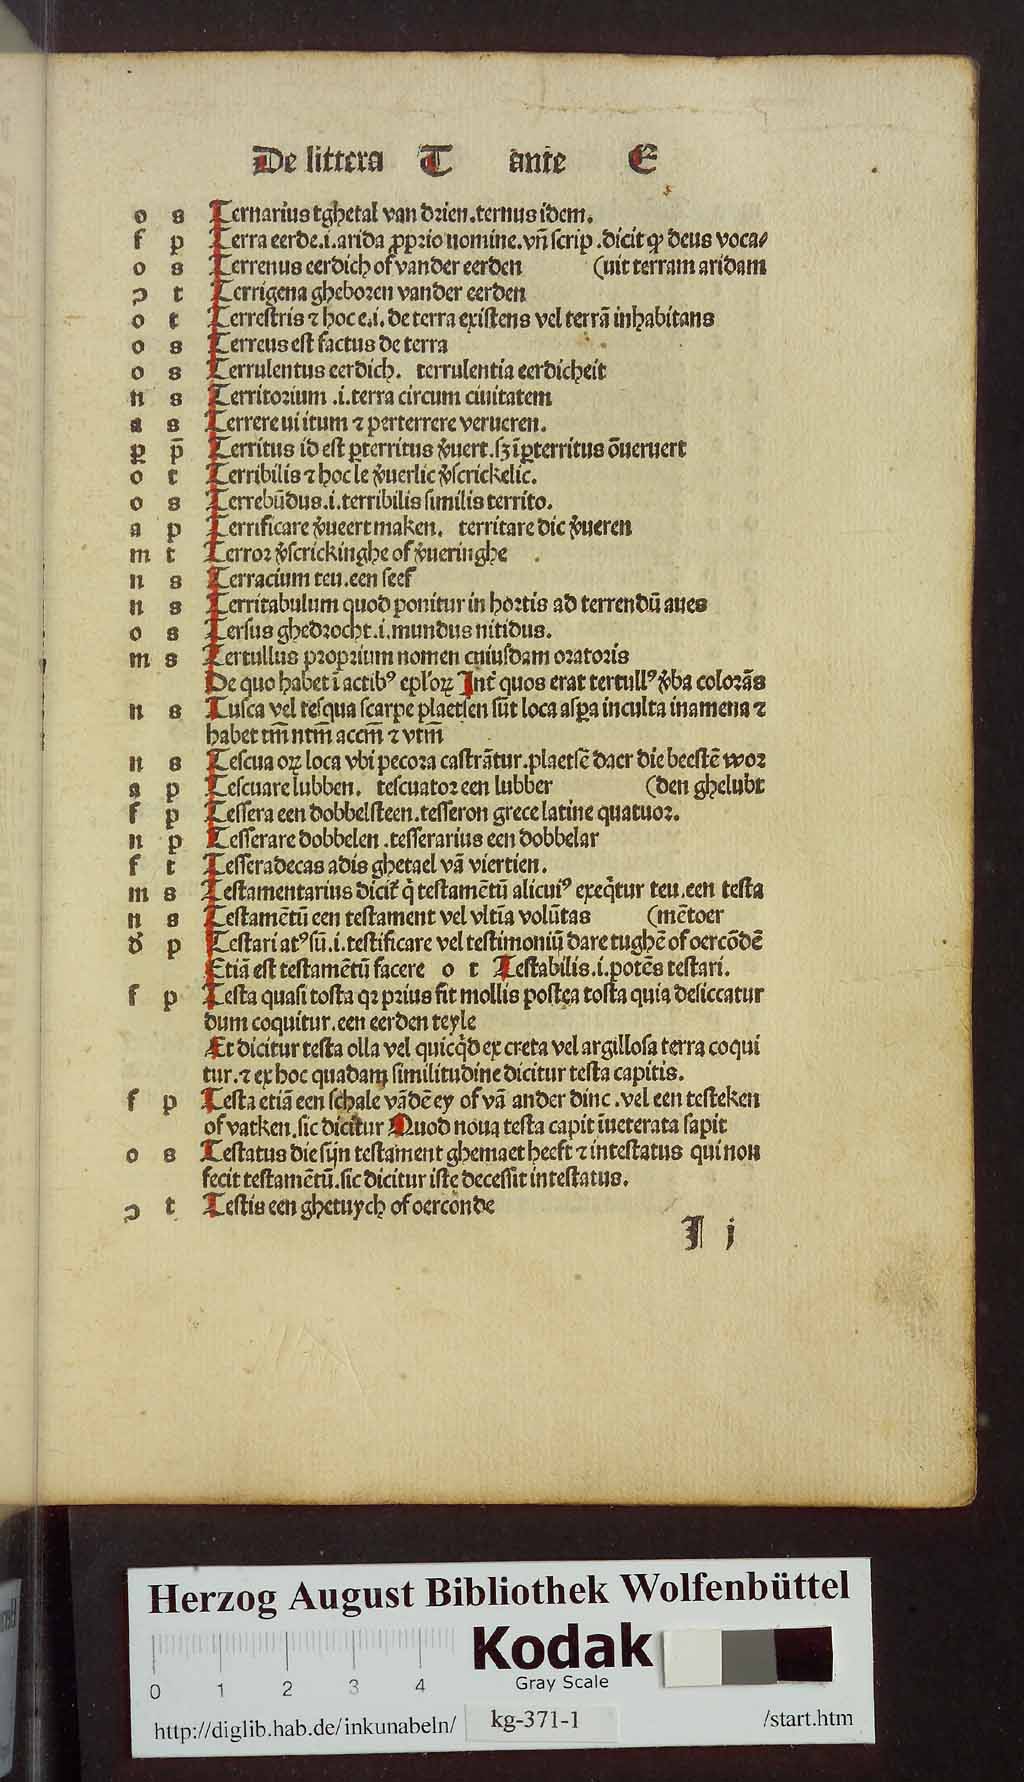 De littera T ante E
o s Ternarius tghetal van drien.ternus idem.
f p Terra eerde.i.arida ꝓprio nomine.vn̄ scrip .dicit ꝙ deus voca⸗
o s Terrenus eerdich of vander eerden (uit terram aridam
ɔ t Terrigena gheboren vander eerden
o t Terrestris ⁊ hoc e.i. de terra existens vel terrā inhabitans
o s Terreus est factus de terra
o s Terrulentus eerdich. terrulentia eerdicheit
n s Territorium .i.terra circum ciuitatem
a s Terrere ui itum ⁊ perterrere verueren.
ꝑ p̄ Territus id est ꝑterritus v̓uert.sꝫ īꝑterritus ōueruert
o t Terribilis ⁊ hoc le v̓uerlic v̓scrickelic.
o s Terrebūdus.i.terribilis similis territo.
a p Terrificare v̓ueert maken. territare dic v̓ueren
m t Terror v̓scrickinghe of v̓ueringhe
n s Terracium teu.een seef
n s Territabulum quod ponitur in hortis ad terrendū aues
o s Tersus ghedrocht.i.mundus nitidus.
m s Tertullus proprium nomen cuiusdam oratoris
De quo habet ī actibꝰ ep̄loꝝ Int̓ quos erat tertullꝰ v̓ba colorās
n s Tusca vel tesqua scarpe plaetsen sūt loca asꝑa inculta inamena ⁊
habet tm̄ ntm̄ accm̄ ⁊ vtm̄
n s Tescua oꝝ loca vbi pecora castrātur.plaetsē daer die beestē wor
a p Tescuare lubben. tescuator een lubber (den ghelubt
f p Tessera een dobbelsteen.tesseron grece latine quatuor.
n p Tesserare dobbelen .tesserarius een dobbelar
f t Tesseradecas adis ghetael vā viertien.
m s Testamentarius dicit̓ q̇ testamētū alicuiꝰ exeq̇tur teu.een testa
n s Testamētū een testament vel vltīa volūtas (mētoer
d̓ p Testari atꝰ sū.i.testificare vel testimoniū dare tughē of oercōdē
Etiā est testamētū facere o t Testabilis.i.potēs testari.
f p Testa quasi tosta qꝛ prius fit mollis postea tosta quia desiccatur
dum coquitur.een eerden teyle
Et dicitur testa olla vel quicq̇d ex creta vel argillosa terra coqui
tur.⁊ ex hoc quadam similitudine dicitur testa capitis.
f p Testa etiā een schale vādē ey of vā ander dinc .vel een testeken
of vatken.sic dicitur Quod noua testa capit inueterata sapit
o s Testatus die sijn testament ghemaet heeft ⁊ intestatus qui non
fecit testamētū.sic dicitur iste decessit intestatus.
ɔ t Testis een ghetuych of oerconde
I j
Herzog August Bibliothek Wolfenbüttel
Kodak
Gray Scale
0 1 2 3 4
http://diglib.hab.de/inkunabeln/ kg-371-1 /start.htm